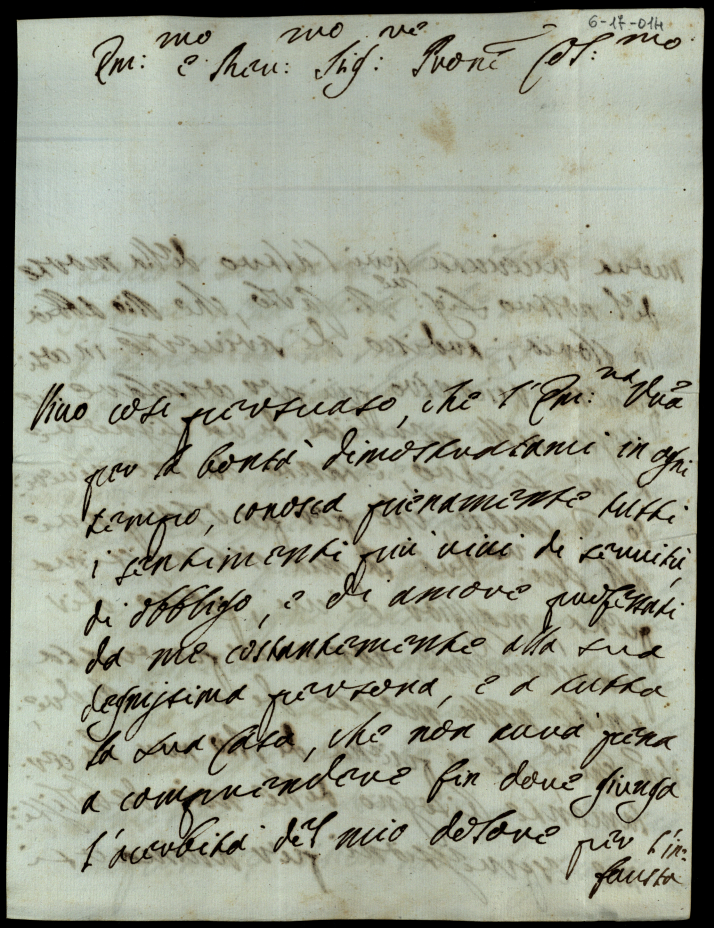 6-17-014
Em:mo e Rev:mo Sig:re Prone Col:mo
Vivo così persuaso, che l'Em:na Vrã
per la bontà dimostratami in ogni
tempo, conosca pienamente tutti
i sentimenti più vivi di servitù,
di obbligo, e di amore professati
da me costantemente alla sua
degnissima persona, e a tutta
la sua Casa, che non avrà pena
a comprendere fin dove giunga
l'acerbità del mio dolore per l'in=
fausta